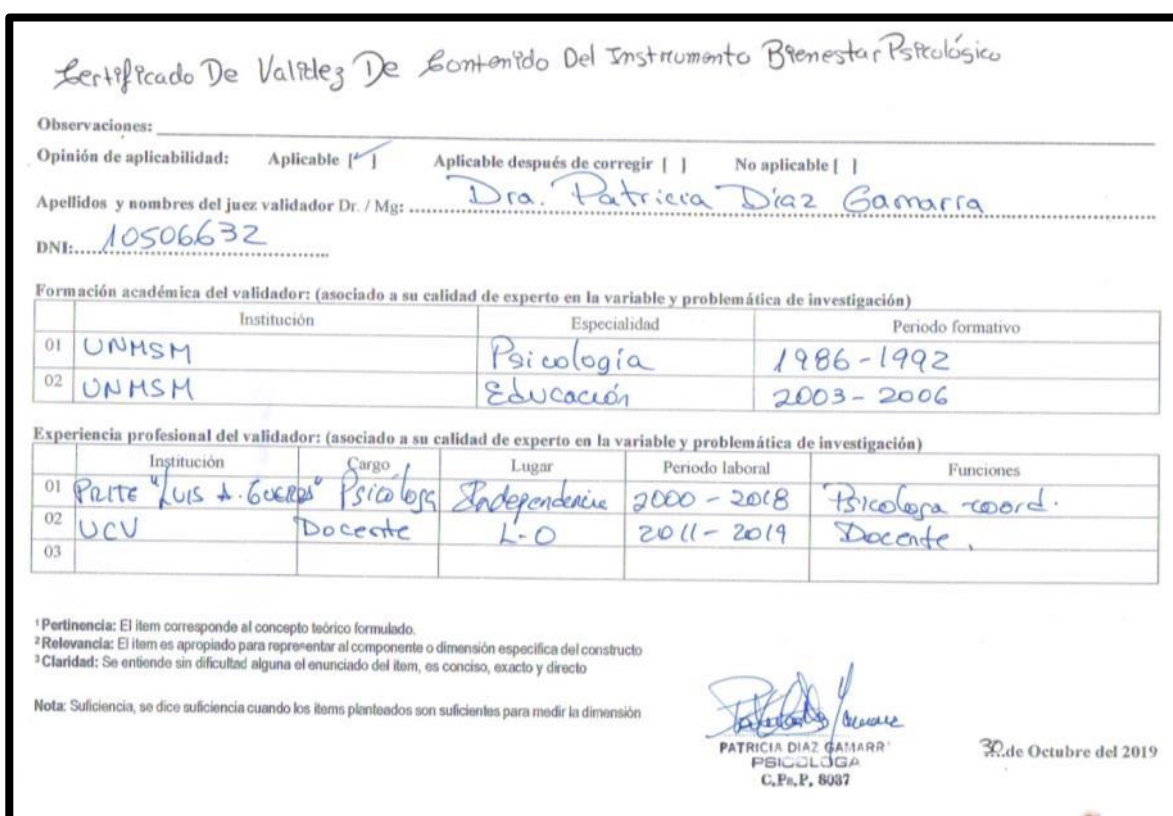 Certificado De Validez De Contenido Del Instrumento Bienestar Psicológico
Observaciones:
Opinión de aplicabilidad: Aplicable [✓] Aplicable después de corregir [ ] No aplicable [ ]
Apellidos y nombres del juez validador Dr. / Mg: Dra. Patricia Díaz Gamarra
DNI: 10506632
Formación académica del validador: (asociado a su calidad de experto en la variable y problemática de investigación)
Institución Especialidad Periodo formativo
01 UNMSM Psicología 1986-1992
02 UNMSM Educación 2003-2006
Experiencia profesional del validador: (asociado a su calidad de experto en la variable y problemática de investigación)
Institución Cargo Lugar Periodo laboral Funciones
01 "Luis A. Psicóloga Independencia 2000-2018 Psicologa coord.
02 UCV Docente L-O 2011-2019 Docente.
03
¹ Pertinencia: El item corresponde al concepto teórico formulado.
² Relevancia: El item es apropiado para representar al componente o dimensión especifica del constructo
³ Claridad: Se entiende sin dificultad alguna el enunciado del item, es conciso, exacto y directo
Nota: Suficiencia, se dice suficiencia cuando los items planteados son suficientes para medir la dimensión
PATRICIA DIAZ GAMARR
PSICOLOGA
C.Ps.P. 8087
30 de Octubre del 2019